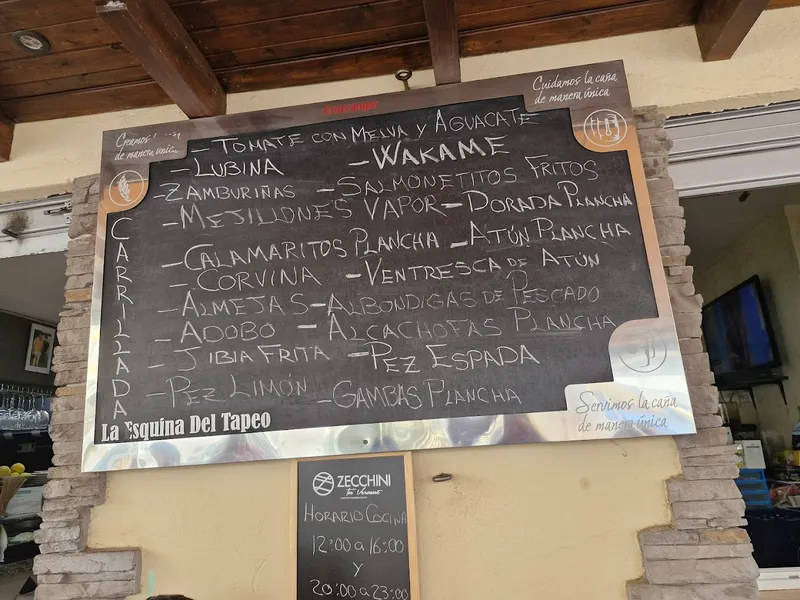 Cuidamos la caña
de manera única
Cruzcampo
Creamos
de manera única
- TOMATE CON MELVA Y AGUACATE
- LUBINA - WAKAME
- ZAMBURIÑAS - SALMONETITOS FRITOS
- MEJILLONES VAPOR - DORADA PLANCHA
- CALAMARITOS PLANCHA - ATÚN PLANCHA
- CORVINA - VENTRESCA DE ATÚN
- ALMEJAS - ALBONDIGAS DE PESCADO
- ADOBO - ALCACHOFAS PLANCHA
- JIBIA FRITA - PEZ ESPADA
- PEZ LIMÓN - GAMBAS PLANCHA
CARRILLADA
La Esquina Del Tapeo
Servimos la caña
de manera única
ZECCHINI
Tu Vermut
HORARIO COCINA
12:00 a 16:00
Y
20:00 a 23:00